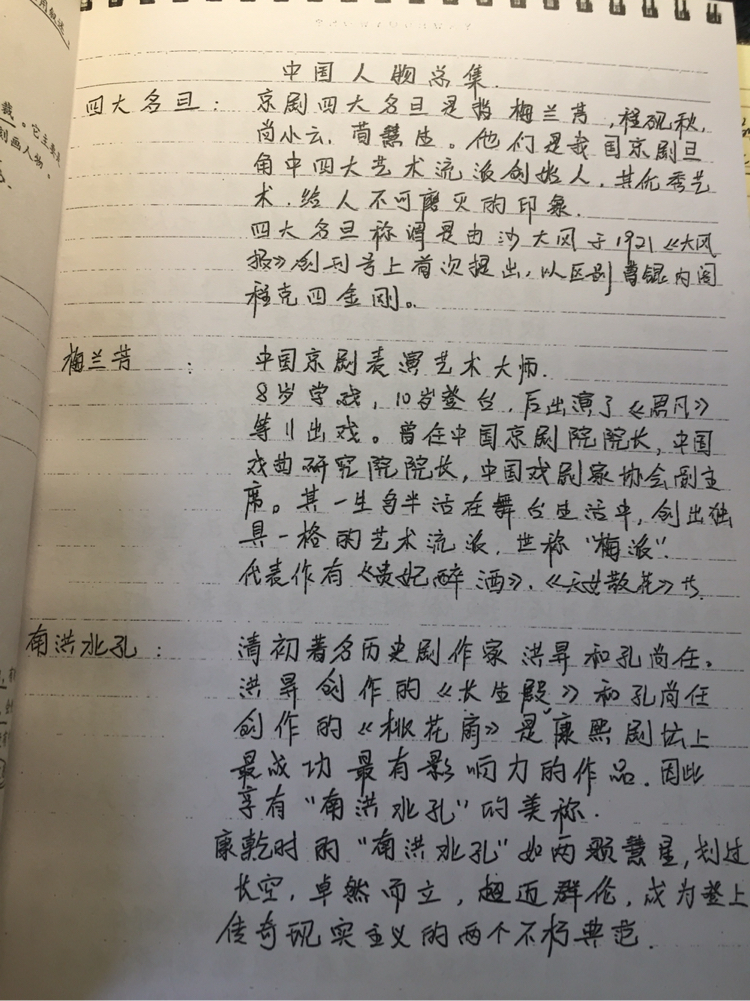 中国人物总集.
四大名旦： 京剧四大名旦是指梅兰芳,程砚秋,
尚小云,荀慧生。他们是我国京剧旦
角中四大艺术流派创始人,其优秀艺
术,给人不可磨灭的印象.
四大名旦称谓是由沙大风于1921《大风
报》创刊号上首次提出,以区别曹锟内阁
程克四金刚。
梅兰芳： 中国京剧表演艺术大师.
8岁学戏,10岁登台,后出演了《思凡》
等11出戏。曾任中国京剧院院长,中国
戏曲研究院院长,中国戏剧家协会副主
席。其一生多半活在舞台生活中,创出独
具一格的艺术流派,世称"梅派".
代表作有《贵妃醉酒》,《天女散花》
南洪北孔： 清初著名历史剧作家洪昇和孔尚任。
洪昇创作的《长生殿》和孔尚任
创作的《桃花扇》是康熙剧坛上
最成功最有影响力的作品.因此
享有"南洪北孔"的美称.
康乾时的"南洪北孔"如两颗慧星,划过
长空,卓然而立,超迈群伦,成为登上
传奇现实主义的两个不朽典范.
刻画人物。